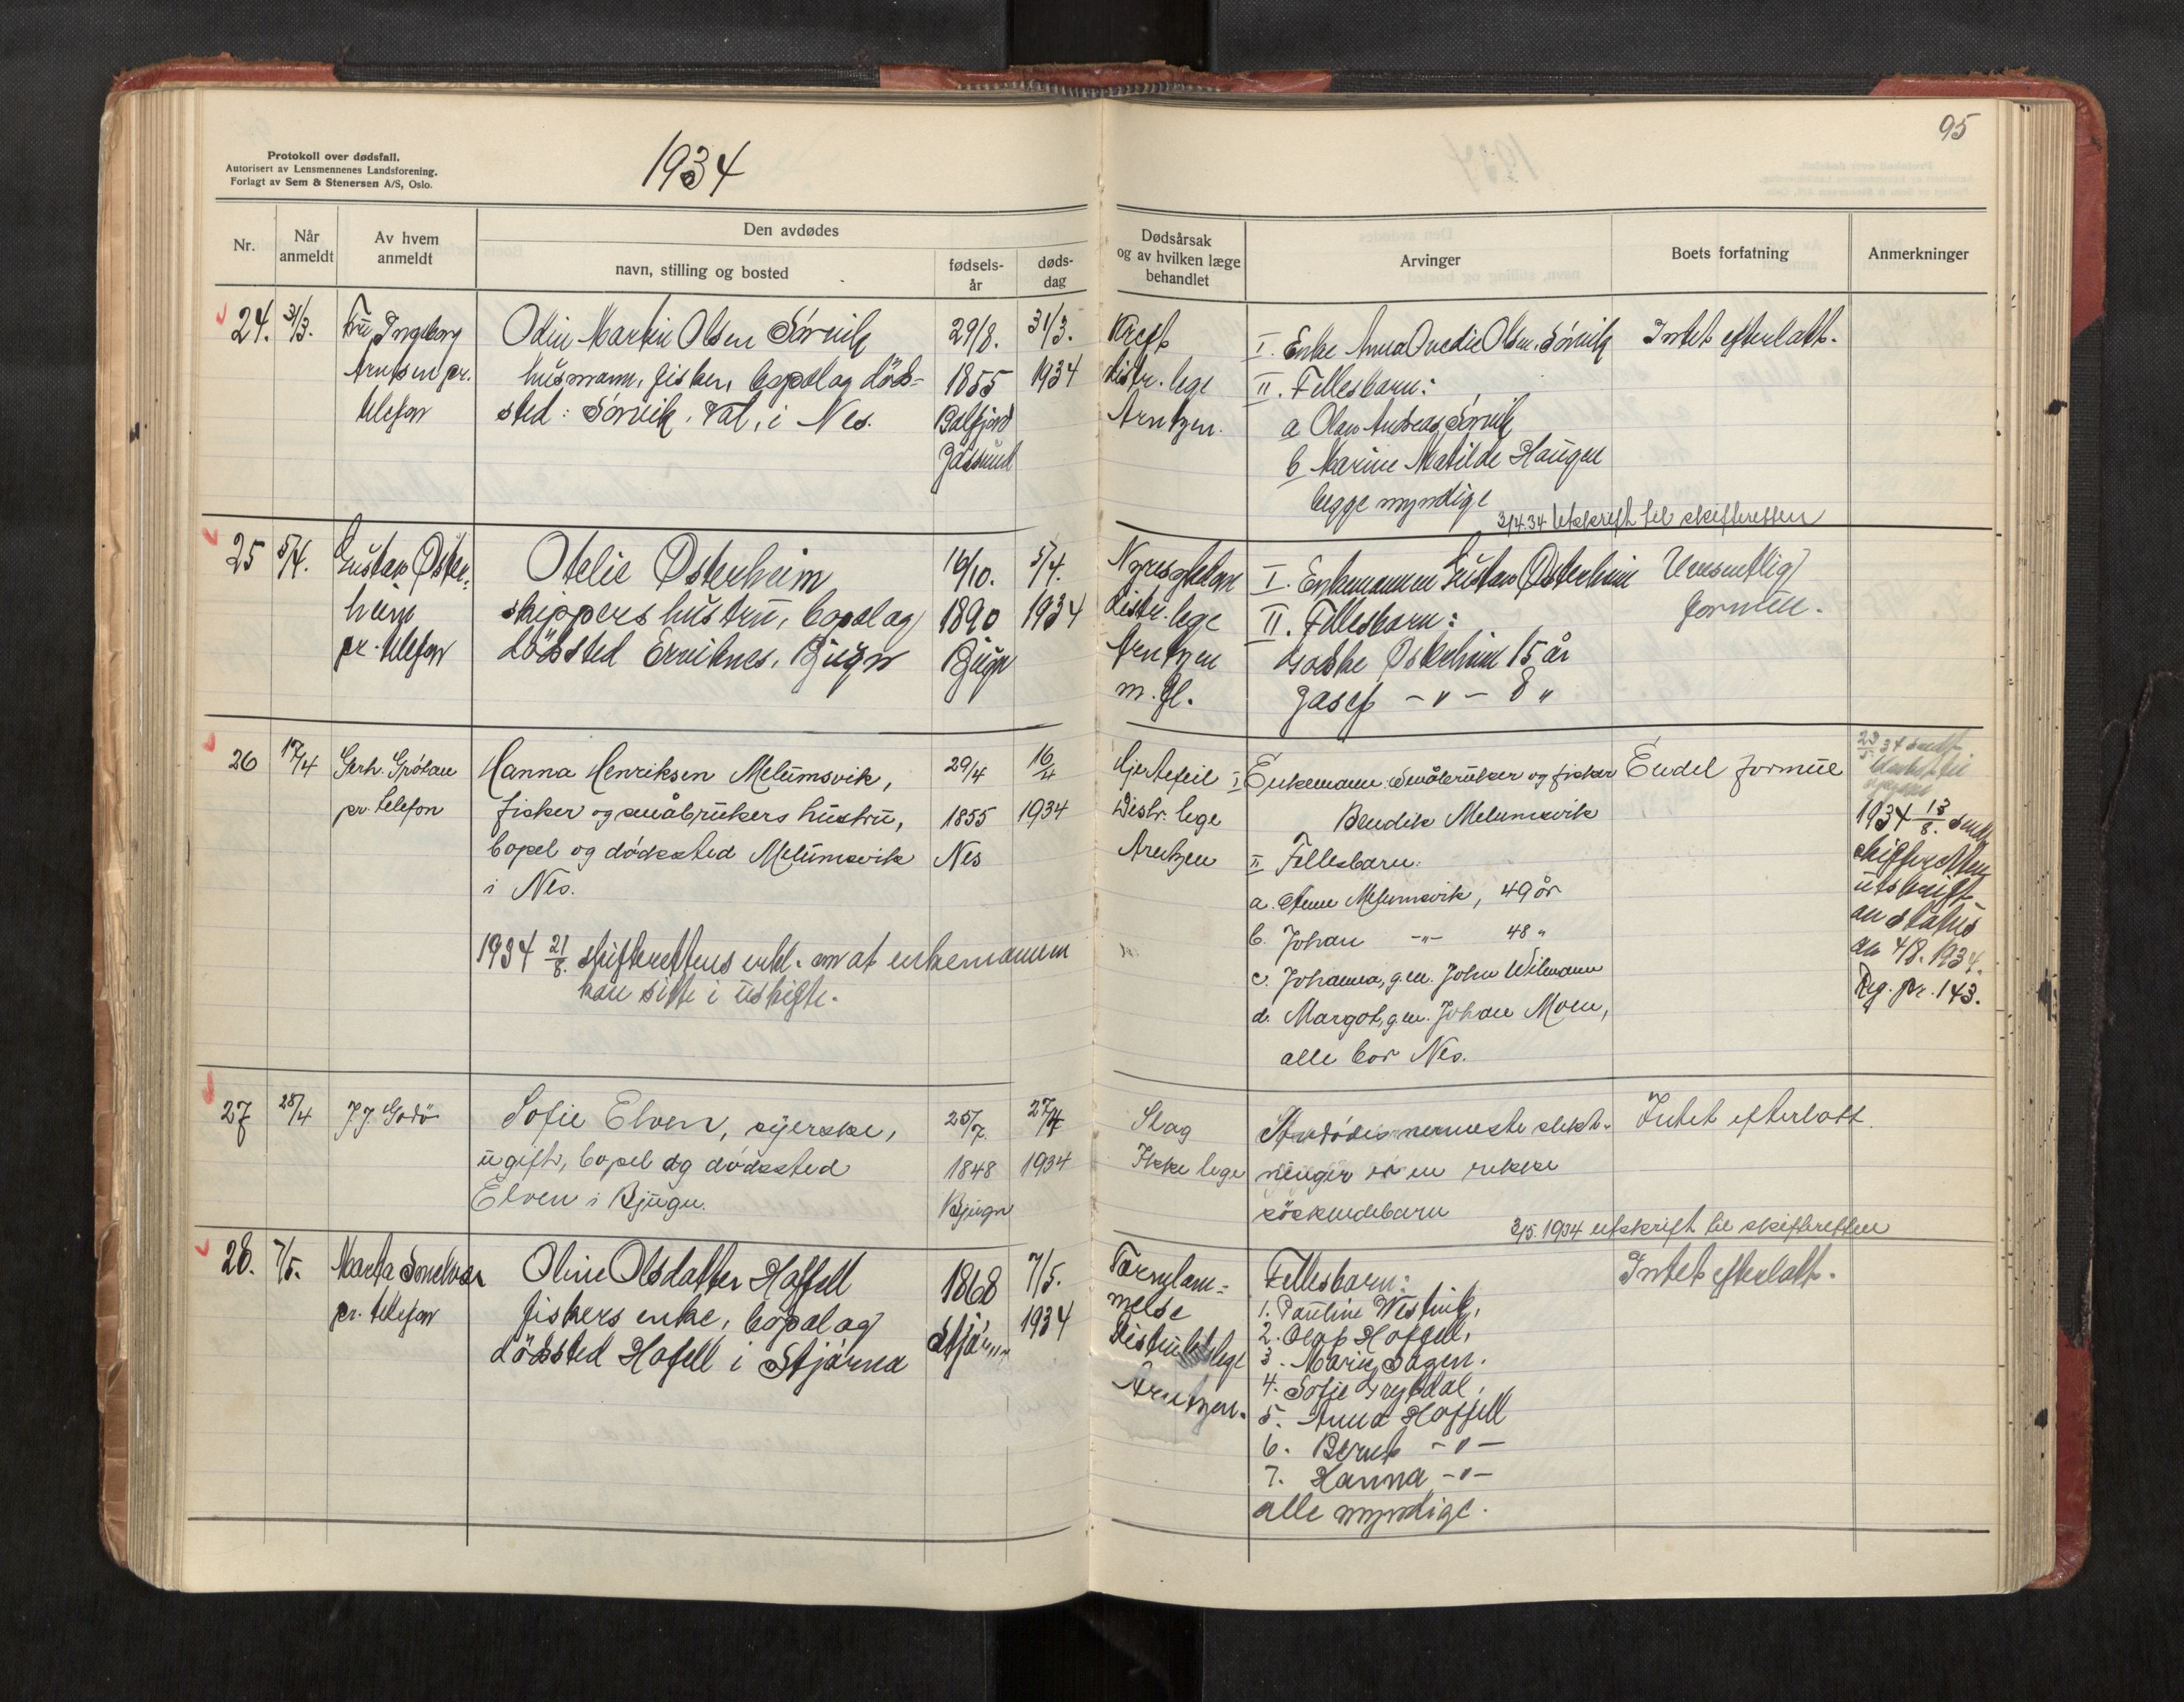 95
Protokoll over dødsfall.
Autorisert av Lensmennenes Landsforening.
Forlagt av Sem & Stenersen A/S, Oslo.
1934
Nr.
Når anmeldt
Av hvem anmeldt
Den avdødes
navn, stilling og bosted
fødsels-år
døds-dag
Dødsårsak og av hvilken læge behandlet
Arvinger
Boets forfatning
Anmerkninger
24.
31/3.
Fru Ingeborg
Arntsen pr.
telefon
Odin Martin Olsen Sörvik
husmann, fisker, bopel og döds-
sted: Sörvik, Val, i Nes.
29/8.
1855
31/3.
1934
Kreft
distr. lege
Arntzen.
I. Enke Anna Ovedie Olsen Sörvik
II. Fellesbarn:
a Olav Andreas Sörvik
b Marine Matilde Haugen
begge myndige
Intet efterlatt.
3/4.34 utskrift til skifteretten
25
5/4.
Gustav Öster-
heim
pr. telefon
Otelie Österheim
skippers hustru, bopel og
dödssted Erviknes, Bjugn
16/10.
1890
Bjugn
5/4.
1934
distr. lege
Arntzen
m. fl.
I. Enkemannen Gustav Österheim
II. Fellesbarn:
Österheim 15 år
Josef -"- 8 "
Uvesentlig
formue.
26
17/4
Gerh. Grötan
pr. telefon
Hanna Henriksen Melumsvik,
fisker og småbrukers hustru,
bopel og dödssted Melumsvik
i Nes.
29/4
1855
Nes
16/4
1934
Hjertefeil
Distr. lege
Arntzen
I Enkemann. Småbruker og fisker
Bendik Melumsvik
II Fellesbarn:
a. Melumsvik, 49 år
b. Johan -"- 48 "
c. Johanna, g.m. John Wilmann
d. Margot, g.m. Johan Moen,
alle bor Nes.
Endel formue
1934 13/8. sendt
skifteretten
utskrift
av status
av 4/8. 1934.
Reg. pr. 143.
1934 21/8. skifterettens erkl. om at enkemannen
kan sitte i uskifte.
27
28/4
J. J. Godö
Sofie Elven, syerske,
ugift, bopel og dödssted
Elven i Bjugn.
25/7.
1848
Bjugn
27/4
1934
Slag
Ikke lege
Avdödes nermeste slekt-
ninger er en rekke
söskendebarn
Intet efterlatt.
3/5. 1934 utskrift til skifteretten
28.
7/5.
Marta
pr. telefon
Oline Olsdatter Hoffell
fiskers enke, bopel og
dödssted Hofell i Stjörna
1868
Stjörna
7/5.
1934
Distriktslege
Arntzen.
Fellesbarn:
1. Pauline Westvik,
2. Olaf Hoffell,
3. Marie Hagen.
4. Sofie Grytdal,
5. Anna Hoffell
6. Bernt -"-
7. Hanna -"-
alle myndige.
Intet efterlatt.